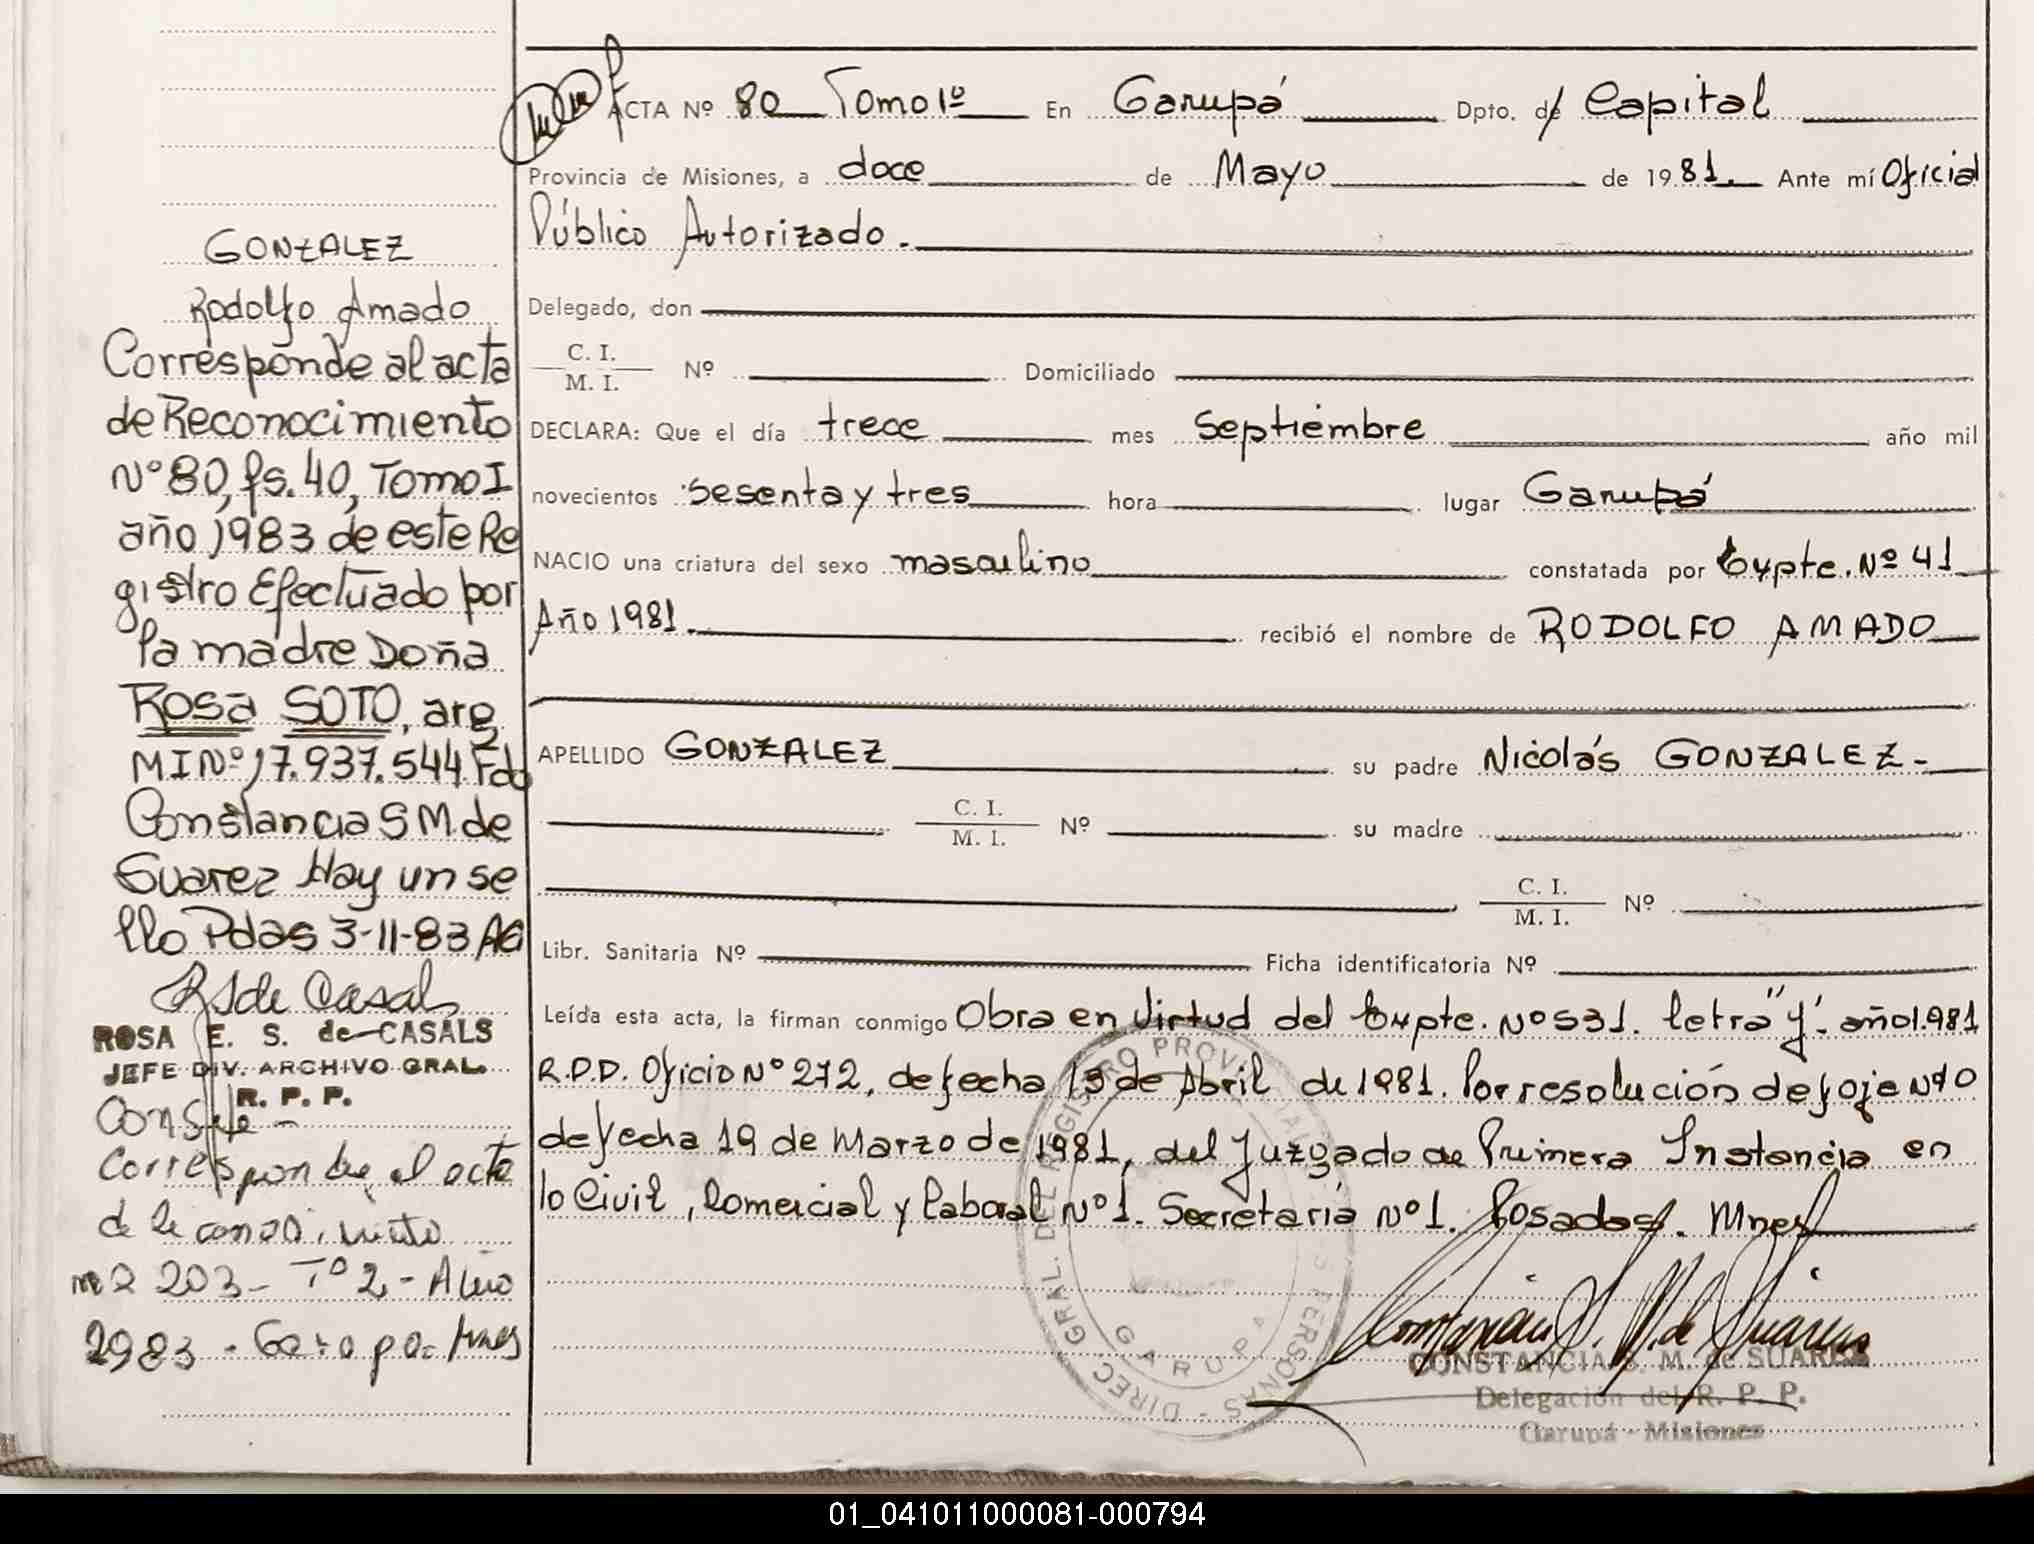 GONZALEZ
Rodolfo Amado
Corresponde al acta
de Reconocimiento
Nº 80, fs. 40, Tomo I
año 1983 de este Re
gistro Efectuado por
la madre Doña
Rosa SOTO, arg
MI Nº 17.937.544 Fdo
Constancia S M. de
Suarez Hay un se
llo Pdas 3-11-83 AG
R S de Casals
ROSA E. S. de CASALS
JEFE DIV. ARCHIVO GRAL.
R. P. P.
Corresponde al acta
de Reconocimiento
203 - Tº 2 -
1983 - Garupa - Mnes
ACTA Nº 80 Tomo 1º En Garupá Dpto. d/ Capital
Provincia de Misiones, a doce de Mayo de 1981. Ante mí Oficial
Público Autorizado.
Delegado, don
C. I.
M. I. Nº Domiciliado
DECLARA: Que el día trece mes Septiembre año mil
novecientos sesenta y tres hora lugar Garupá
NACIO una criatura del sexo masculino constatada por Expte. Nº 41
Año 1981. recibió el nombre de RODOLFO AMADO
APELLIDO GONZALEZ su padre Nicolás GONZALEZ.-
C. I.
M. I. Nº su madre
C. I.
M. I. Nº
Libr. Sanitaria Nº Ficha identificatoria Nº
Leída esta acta, la firman conmigo Obra en virtud del Expte. Nº 531. letra "Y". año 1.981
R.P.P. Oficio Nº 272, de fecha 13 de Abril de 1981. Por resolución de foje Nº 10
de fecha 19 de Marzo de 1981, del Juzgado de Primera Instancia en
lo Civil, Comercial y Laboral Nº 1. Secretaria Nº 1. Posadas. Mnes
DIREC. GRAL. DEL REGISTRO PROVINCIAL DE LAS PERSONAS -
GARUPA
Constancia S. M. de Suarez
CONSTANCIA S. M. de SUAREZ
Delegación del R. P. P.
Garupá - Misiones
01_041011000081-000794